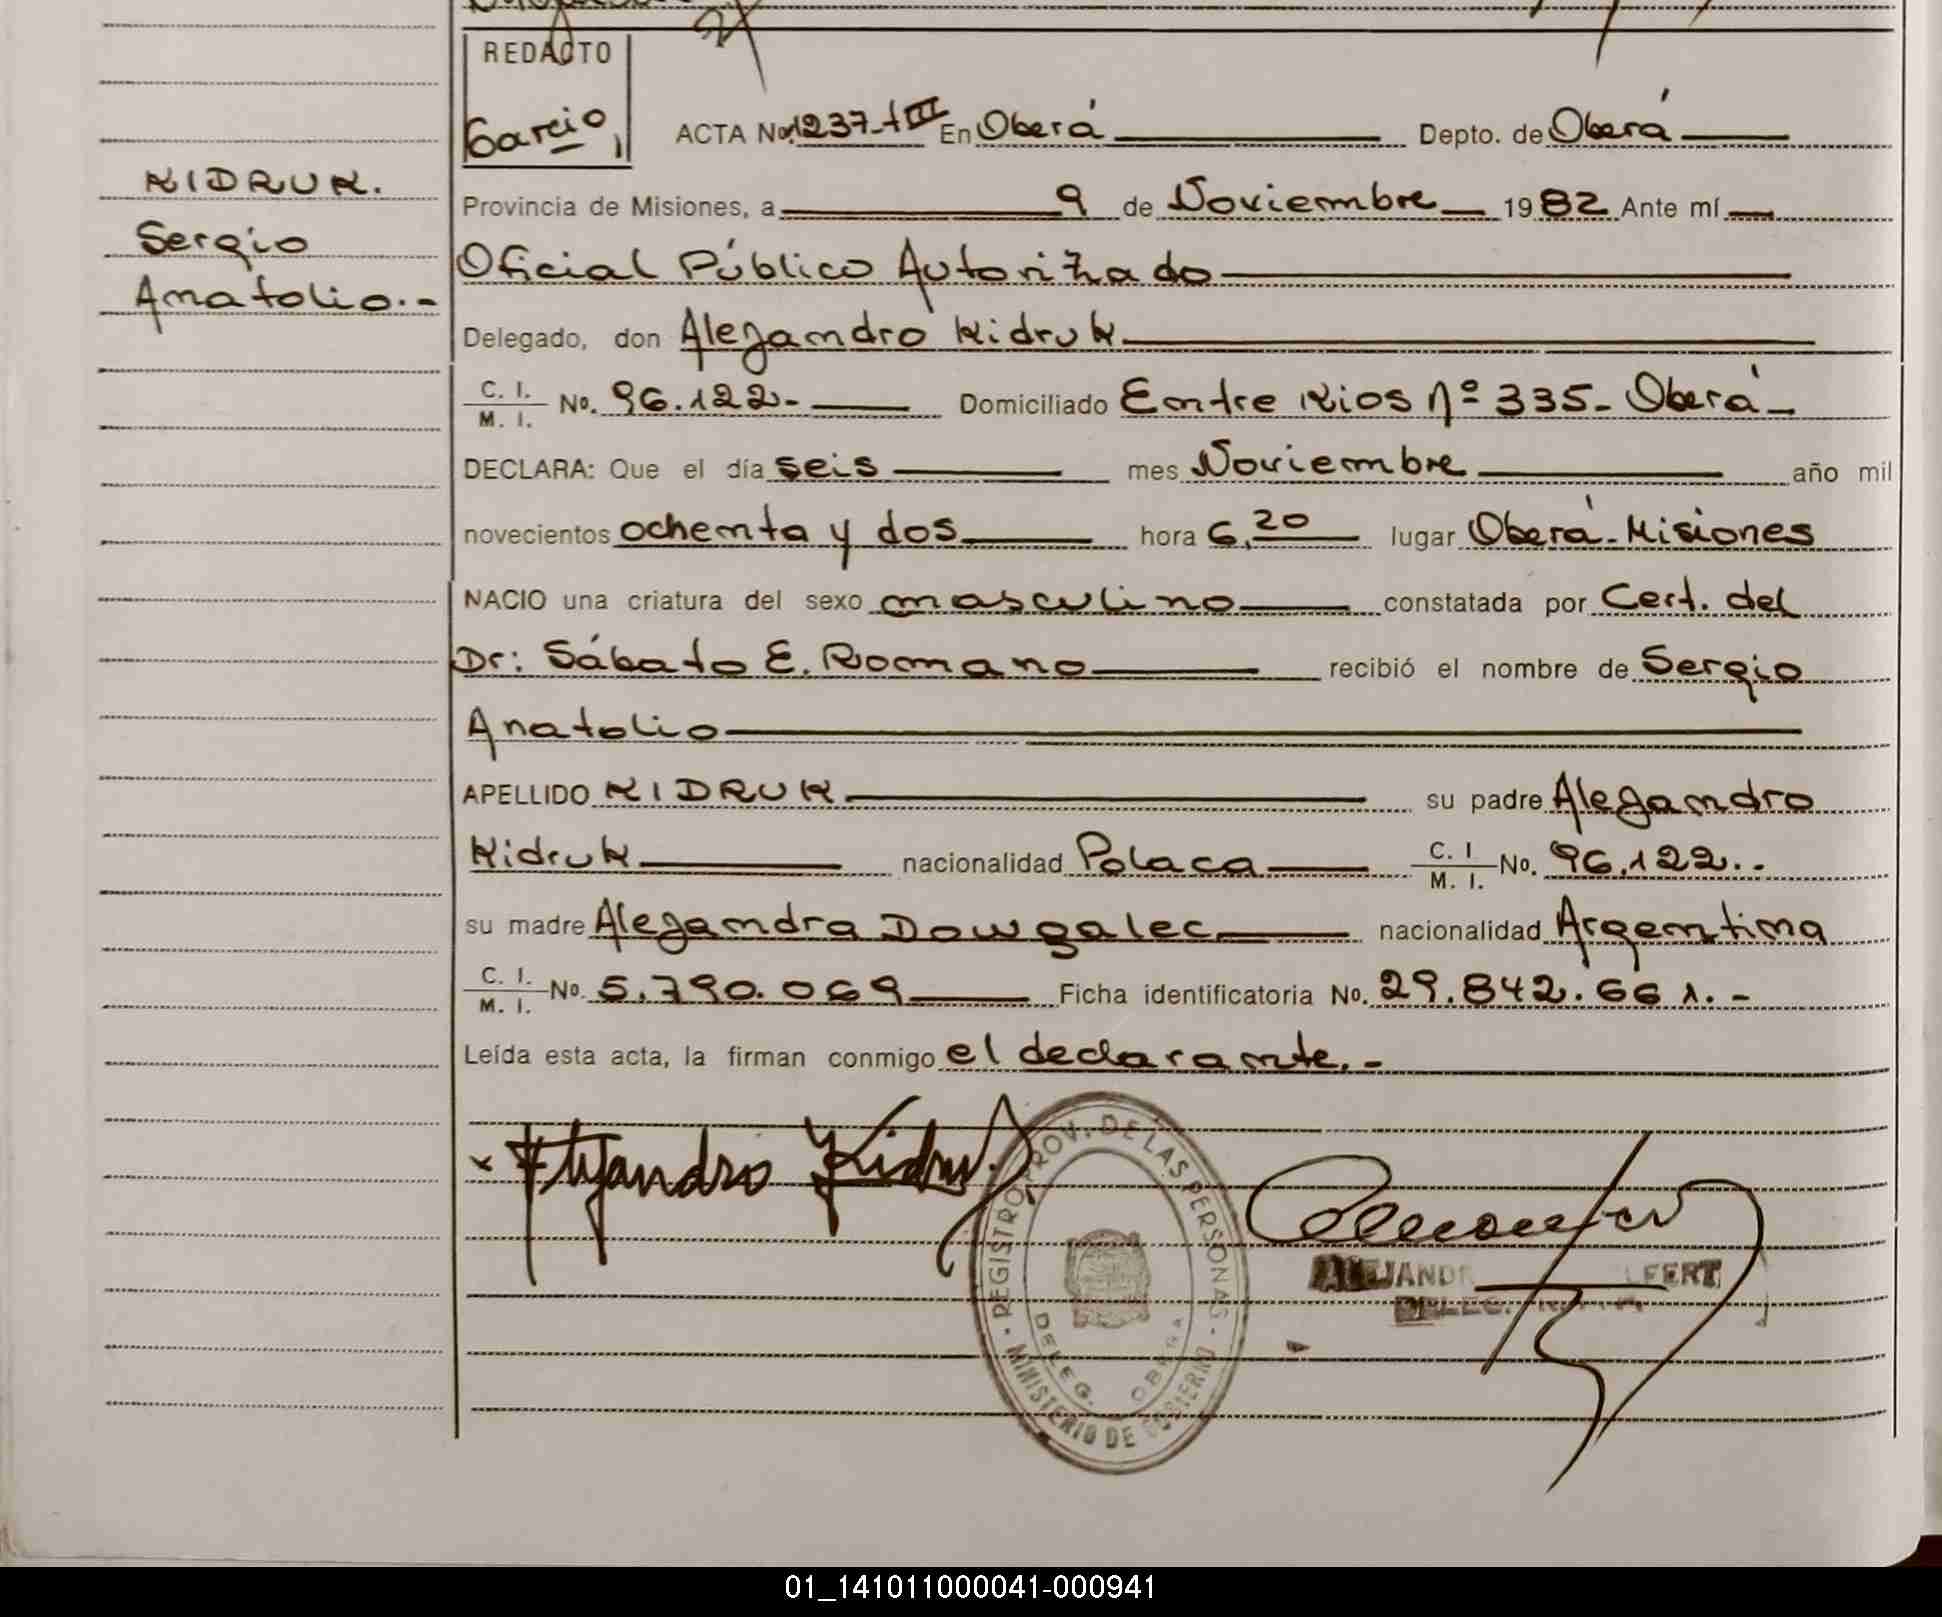 REDACTO
Garcia
ACTA No. 1237-tIII En Oberá Depto. de Oberá
KIDRUK.
Sergio
Anatolio.-
Provincia de Misiones, a 9 de Noviembre 1982 Ante mí
Oficial Público Autorizado
Delegado, don Alejandro Kidruk
C. I. / M. I. No. 96.122- Domiciliado Entre Rios nº 335- Oberá-
DECLARA: Que el día seis mes Noviembre año mil
novecientos ochenta y dos hora 6,20 lugar Oberá-Misiones
NACIO una criatura del sexo masculino constatada por Cert. del
Dr: Sábato E. Romano recibió el nombre de Sergio
Anatolio
APELLIDO KIDRUK su padre Alejandro
Kidruk nacionalidad Polaca C. I / M. I. No. 96.122.-
su madre Alejandra Dowgalec nacionalidad Argentina
C. I. / M. I. No. 5.790.069 Ficha identificatoria No. 29.842.661.-
Leída esta acta, la firman conmigo el declarante.-
x Alejandro Kidruk
REGISTRO PROV. DE LAS PERSONAS
MINISTERIO DE GOBIERNO
DELEG. OBERA
01_141011000041-000941